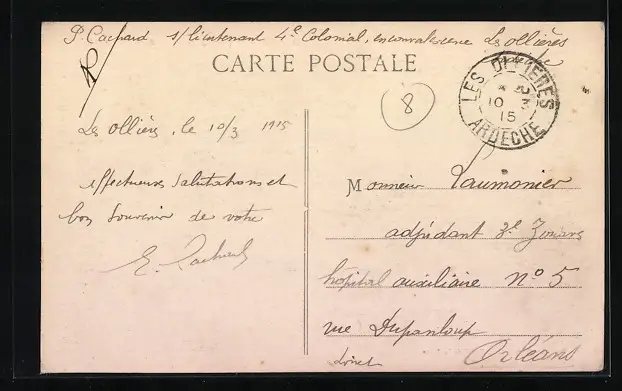 s/lieutenant 4e Colonial, en convalescence Les Ollières
Ardèche
CARTE POSTALE
8
LES OLLIERES
10 3
15
ARDECHE
Les Ollières, le 10/3 1915
affectueuses salutations et
bon souvenir de votre
Monsieur Vaumonier
adjudant 3e Zouaves
hôpital auxiliaire No 5
rue Dupanloup
Orléans
Loiret